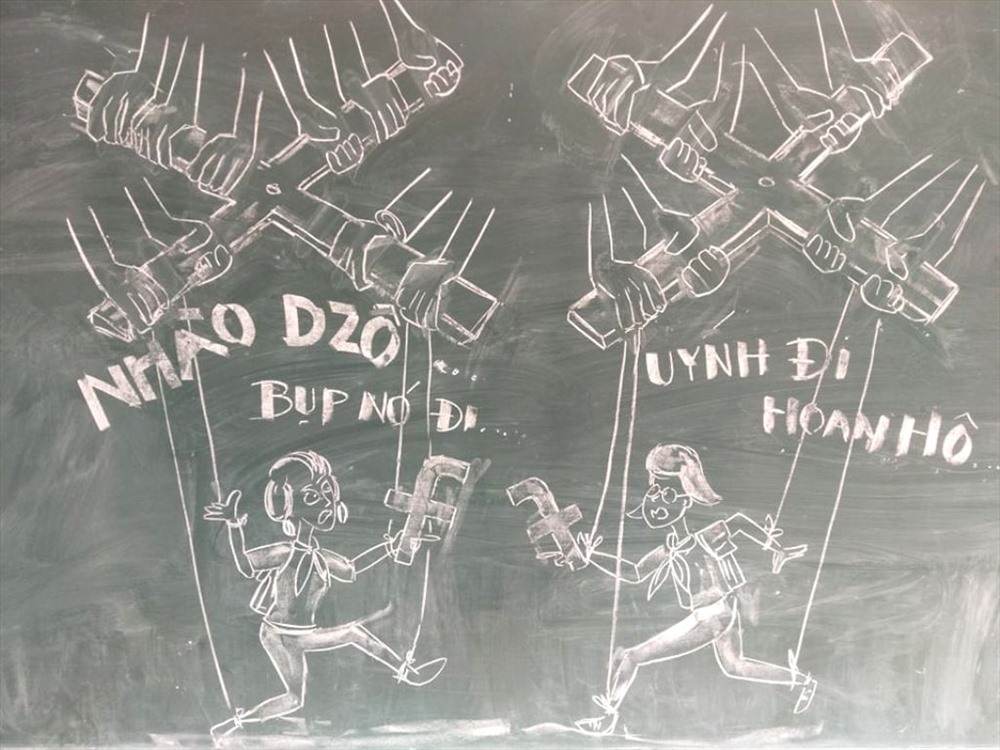 NHÀO DZÔ...
BỤP NÓ ĐI....
UYNH ĐI
HOAN HÔ...
f
f